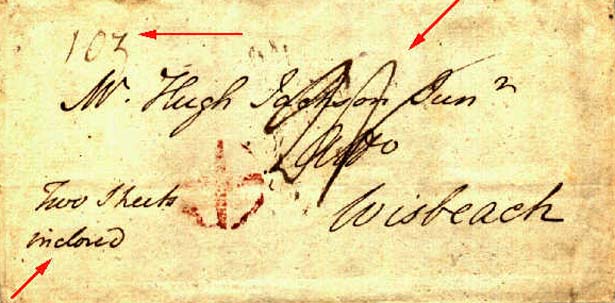 103
Mr. Hugh Jackson Junr
Wisbeach
Two Sheets
inclosed